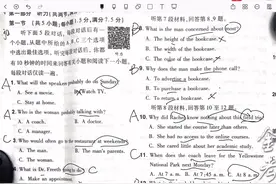 第一节 (共5小题;每小题1.5分,满分7.5分)
听下面5段对话。每段对话后有一
个小题,从题中所给的A、B、C三个选项
有10秒钟的时间来回答有关小题和阅读下一小题。
每段对话仅读一遍。
1. What will the speakers probably do on Sunday?
A. See a movie.
B. Watch TV.
C. Stay at home.
2. Who is the woman probably talking with?
A. A coach.
B. A doctor.
C. A manager.
3. Who would often go to the restaurant at weekends?
A. The man.
B. The man's parents.
C. The woman.
4. What is Dr. Frosth
Make an appointment.
听第7段材料,回答第8、9题。
8. What is the man concerned about most?
A. The height of the bookcase.
B. The width of the bookcase.
C. The color of the bookcase.
9. Why does the man make the phone call?
A. To advertise a bookcase.
B. To purchase a bookcase.
C. To return a bookcase.
听第8段材料,回答第10至12题。
10. Why did Rachel know nothing about the field trip?
A. She started the course later than others.
B. She had no access to the online courses.
C. She cared little about her academic study.
11. When does the coach leave for the Yellowstone
National Park next Monday?
A. At 7 a.m.
B. At 7:45 a.m.
C. At 8 a.m.